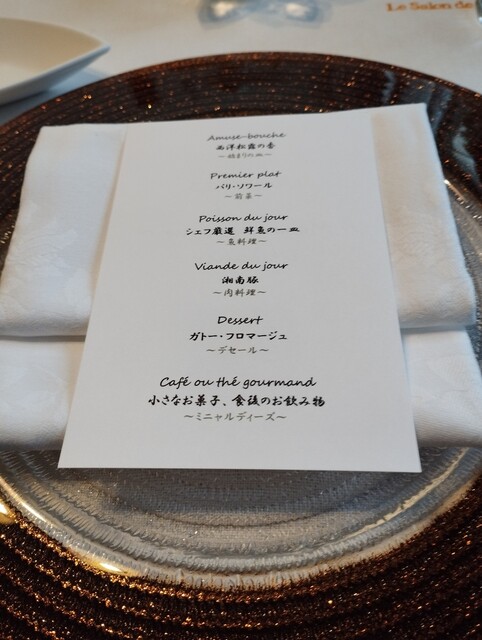 Le Salon de
Amuse-bouche
西洋松露の香
～始まりの皿～
Premier plat
パリ・ソワール
～前菜～
Poisson du jour
シェフ厳選 鮮魚の一皿
～魚料理～
Viande du jour
湘南豚
～肉料理～
Dessert
ガトー・フロマージュ
～デセール～
Café ou thé gourmand
小さなお菓子、食後のお飲み物
～ミニャルディーズ～